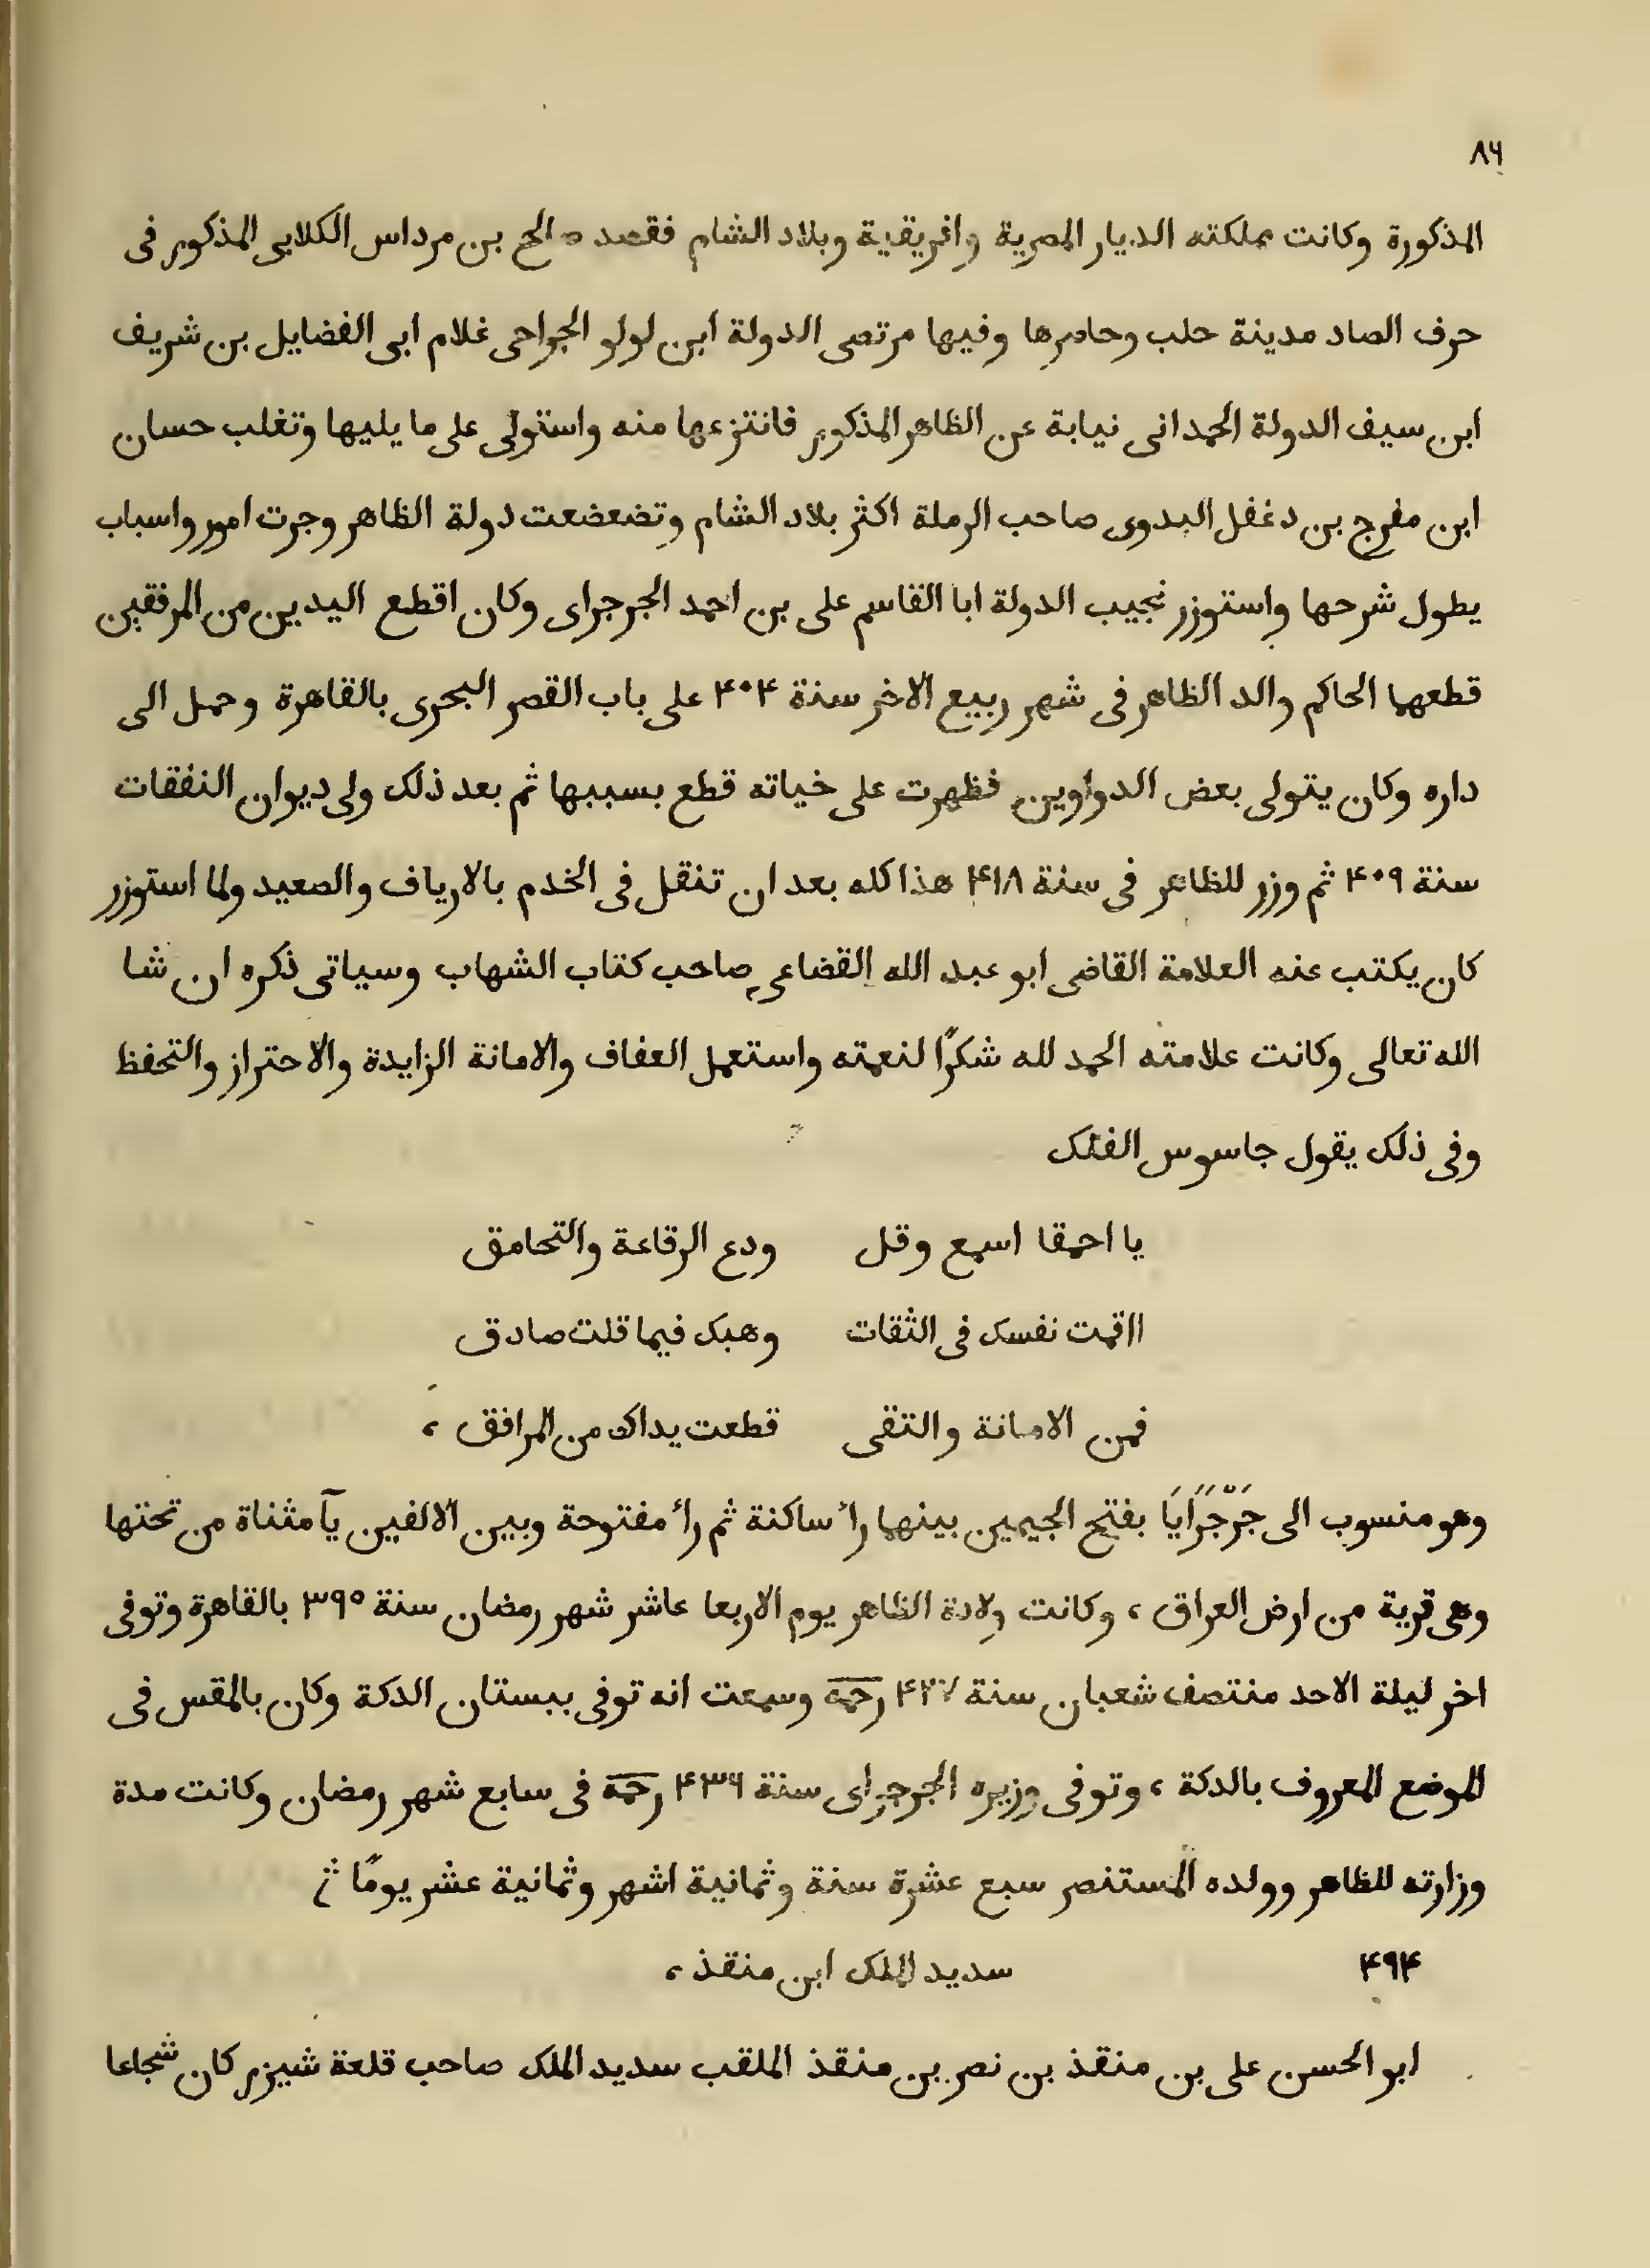 ٨٦
المذكورة وكانت مملكته الديار المصرية وافريقية وبلاد الشام فقصد صالح بن مرداس الكلابى المذكور فى
حرف الصاد مدينة حلب وحاصرها وفيها مرتضى الدولة ابن لولو الجراحى غلام ابى الفضايل بن شريف
ابن سيف الدولة الحمدانى نيابة عن الظاهر المذكور فانتزعها منه واستولى على ما يليها وتغلب حسان
ابن مفرج بن دغفل البدوى صاحب الرملة اكثر بلاد الشام وتضعضعت دولة الظاهر وجرت امور واسباب
يطول شرحها واستوزر نجيب الدولة ابا القاسم على بن احمد الجرجراى وكان اقطع اليدين من المرفقين
قطعهما الحاكم والد الظاهر فى شهر ربيع الاخر سنة ۴۰۴ على باب القصر البحرى بالقاهرة وحمل الى
داره وكان يتولى بعض الدواوين فظهرت على خياته قطع بسببها ثم بعد ذلك ولى ديوان النفقات
سنة ۴۰۹ ثم وزر للظاهر فى سنة ۴۱۸ هذا كله بعد ان تنقل فى الخدم بالارياف والصعيد ولما استوزر
كان يكتب عنه العلامة القاضى ابو عبد الله القضاعى صاحب كتاب الشهاب وسياتى ذكره ان شا
الله تعالى وكانت علامته الحمد لله شكرًا لنعمته واستعمل العفاف والامانة الزايدة والاحتراز والتحفظ
وفى ذلك يقول جاسوس الفلك
يا احمقا اسمع وقل ودع الرقاعة والتحامق
ااقمت نفسك فى الثقات وهبك فيما قلت صادق
فمن الامانة والتقى قطعت يداك من المرافق ،
وهو منسوب الى جَرْجَرَايَا بفتح الجيمين بينهما رأ ساكنة ثم رأ مفتوحة وبين الالفين يآ مثناة من تحتها
وهى قرية من ارض العراق ، وكانت ولادة الظاهر يوم الاربعا عاشر شهر رمضان سنة ۳۹۵ بالقاهرة وتوفى
اخر ليلة الاحد منتصف شعبان سنة ۴۲۷ رحمه وسمعت انه توفى ببستان الدكة وكان بالمقس فى
الموضع المعروف بالدكة ، وتوفى وزيره الجرجراى سنة ۴۳۶ رحمه فى سابع شهر رمضان وكانت مدة
وزارته للظاهر وولده المستنصر سبع عشرة سنة وثمانية اشهر وثمانية عشر يومًا
۴۹۴ سديد الملك ابن منقذ ،
ابو الحسن على بن منقذ بن نصر بن منقذ الملقب سديد الملك صاحب قلعة شيزر كان شجاعا